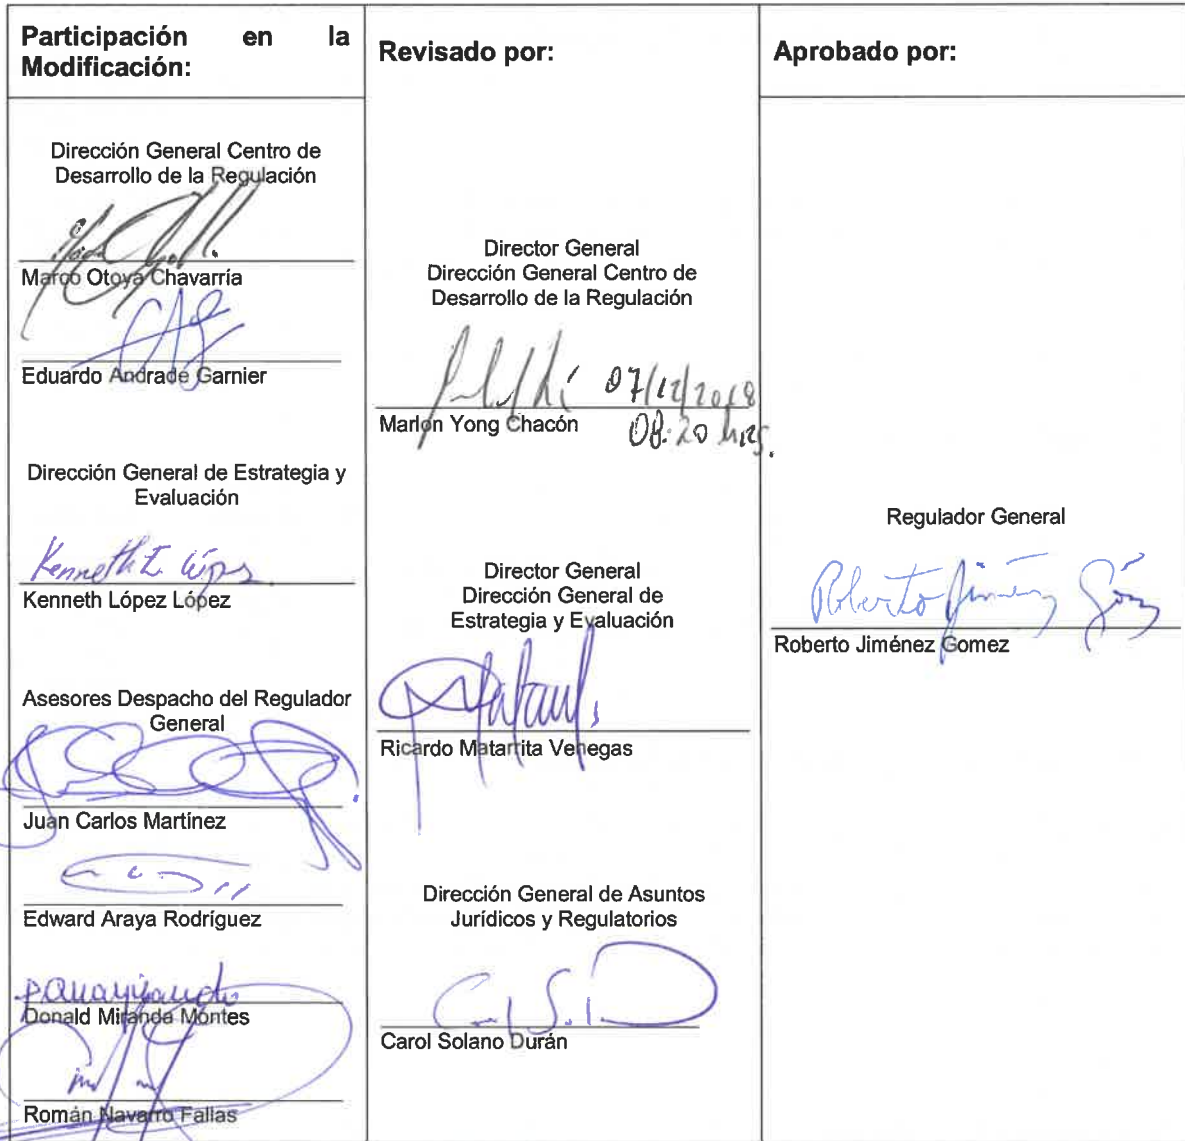 Participación en la
Modificación:
Dirección General Centro de
Desarrollo de la Regulación
Marco Otoya Chavarría
Eduardo Andrade Garnier
Dirección General de Estrategia y
Evaluación
Kenneth L López
Kenneth López López
Asesores Despacho del Regulador
General
Juan Carlos Martínez
Edward Araya Rodríguez
Donald Miranda Montes
Román Navarro Fallas
Revisado por:
Director General
Dirección General Centro de
Desarrollo de la Regulación
07/12/2018
Marlon Yong Chacón
08:20 hrs.
Director General
Dirección General de
Estrategia y Evaluación
Ricardo Matarrita Venegas
Dirección General de Asuntos
Jurídicos y Regulatorios
Carol Solano Durán
Aprobado por:
Regulador General
Roberto Jiménez Góm
Roberto Jiménez Gomez